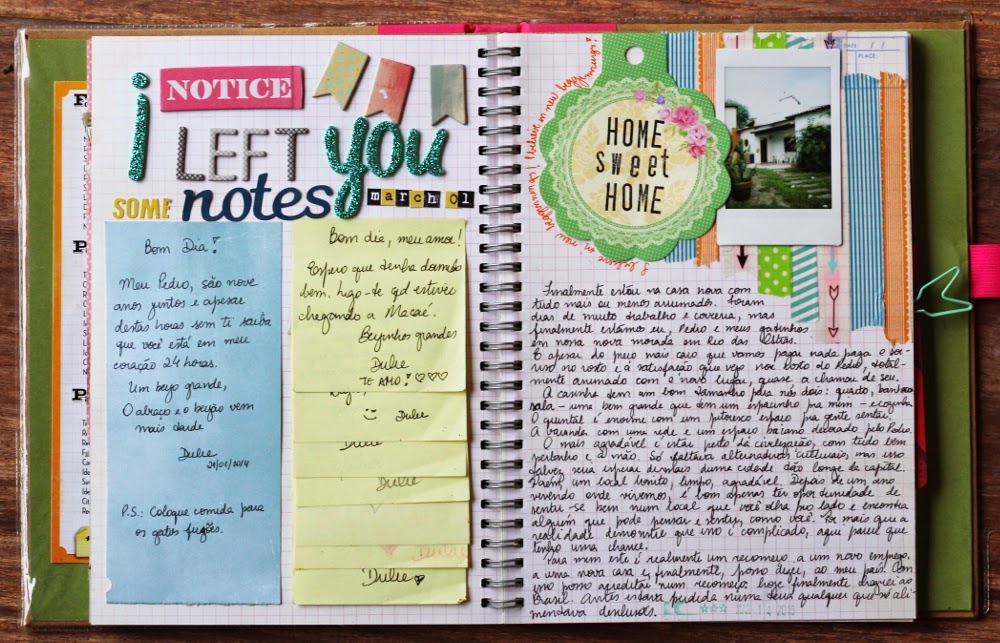 i NOTICE
i LEFT you
SOME notes
march 01
Bom Dia!
Meu Pedro, são nove
anos juntos e apesar
destas horas sem ti saiba
que você está em meu
coração 24 horas.
Um beijo grande,
O abraço e o beijão vem
mais tarde
Dulce
21/01/2014
P.S.: Coloque comida para
os gatos fujões.
Bom dia, meu amor!
Espero que tenha dormido
bem. Ligo-te qd estiver
chegando a Macaé.
Beijinhos grandes
Dulce
TE AMO!
Dulce
Dulce
Dulce
Dulce
HOME
sweet
HOME
I believe in new beginnings
DATE: / /
PLACE:
Finalmente estou na casa nova com
tudo mais ou menos arrumado. Foram
dias de muito trabalho e correria, mas
finalmente estamos eu, Pedro e meus gatinhos
em nossa nova morada em Rio das Ostras.
E apesar do preço mais caro que vamos pagar nada paga o sor-
riso no rosto e a satisfação que vejo no rosto do Pedro, total-
mente animado com o novo lugar, quase a chamar de seu.
A casinha tem um bom tamanho para nós dois: quarto, banheiro
sala - uma bem grande que tem um espacinho pra mim - e cozinha
O quintal é enorme com um pitoresco espaço pra gente sentar.
A varanda com uma rede e um espaço baiano decorado pelo Pedro.
O mais agradável é estar perto da civilização, com tudo bem
pertinho e à mão. Só faltava alternativas culturais, mas isso
talvez seria esperar demais duma cidade tão longe da capital.
Porém, um local bonito, limpo, agradável. Depois de um ano
vivendo onde vivemos, é bom apenas ter oportunidade de
sentir-se bem num local que você olha pro lado e encontra
alguém que pode pensar e sentir, como você. Por mais que a
realidade demonstre que isso é complicado, aqui parece que
tenho uma chance.
Para mim este é realmente um recomeço, a um novo emprego,
a uma nova casa e, finalmente, posso dizer, ao meu país. Com
isso posso acreditar num recomeço: hoje finalmente cheguei ao
Brasil. Antes estava perdida numa terra qualquer que só ali-
mentava desilusões.